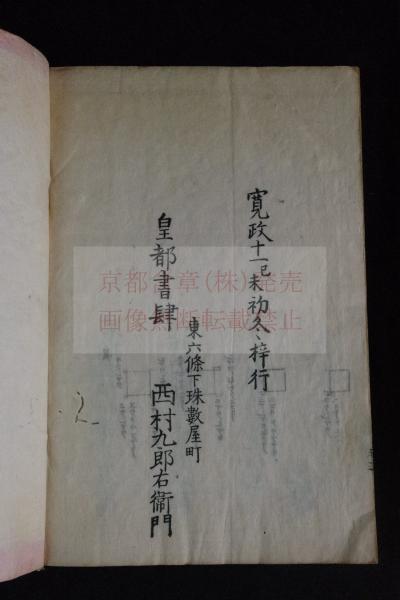 寛政十一己未初冬梓行
東六條下珠數屋町
皇都書肆 西村九郎右衛門
京都書章(株)発売
画像無断転載禁止